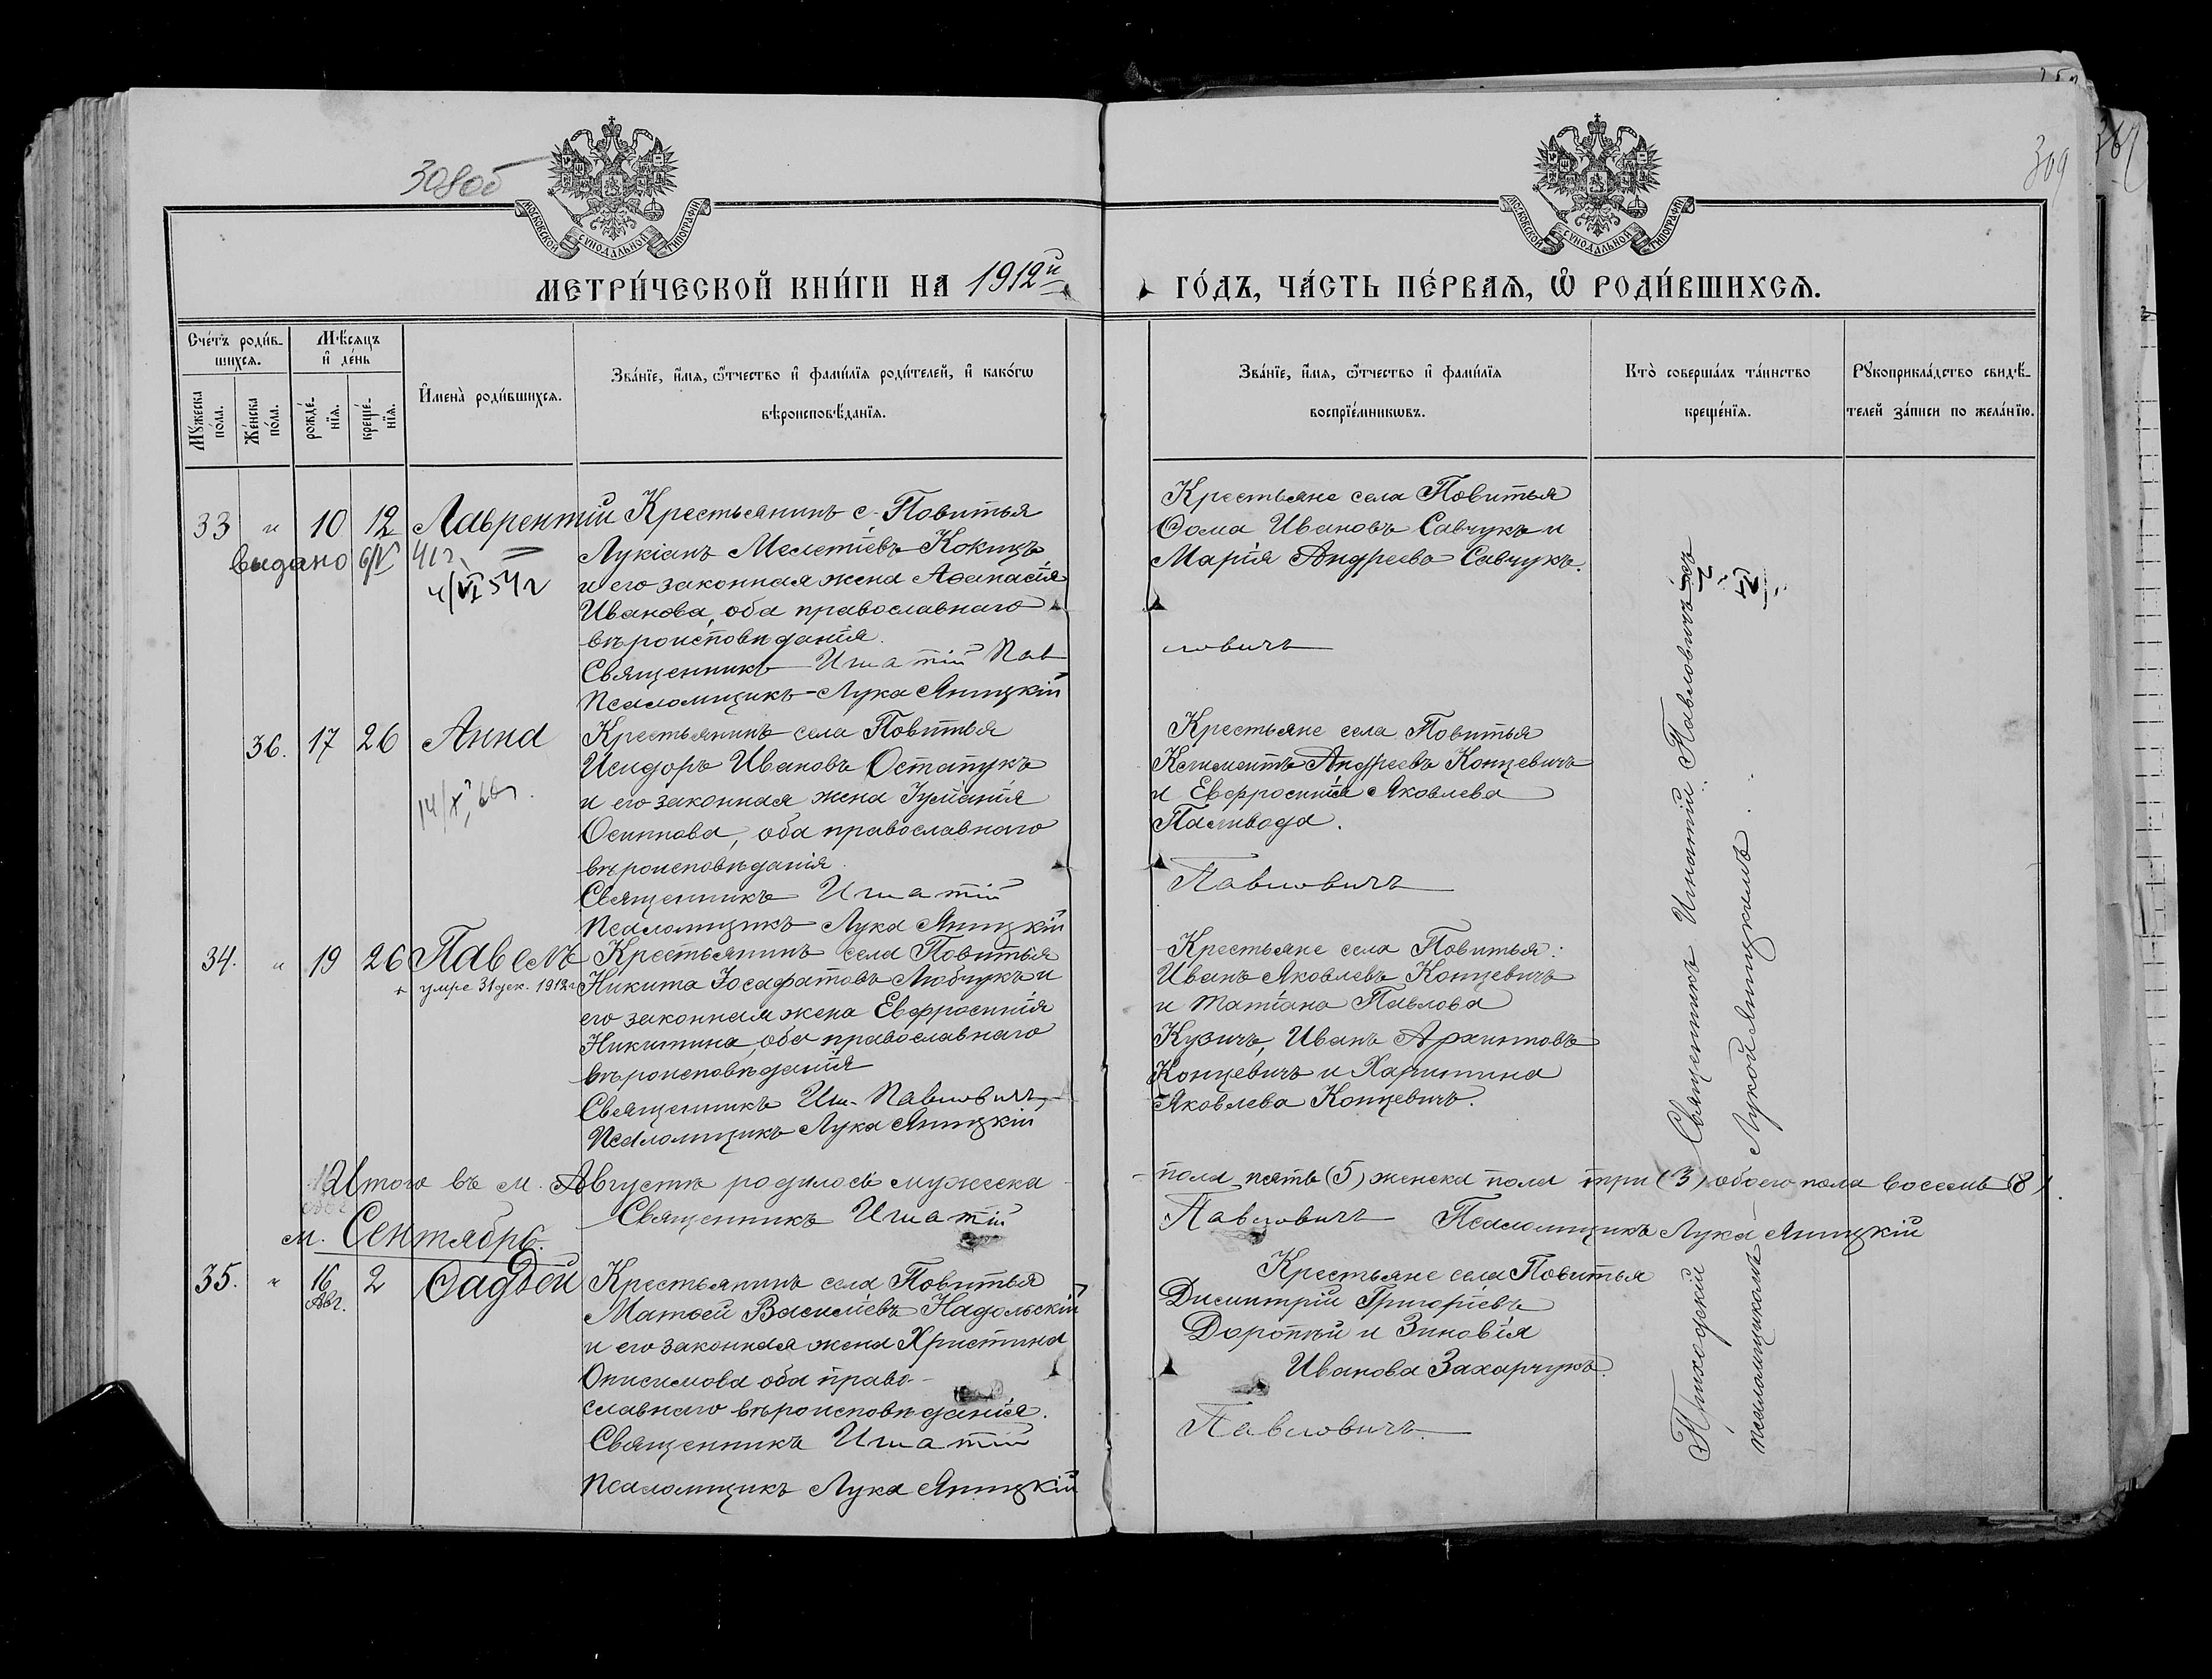 308об
309
МОСКОВСКОЙ СѴНОДАЛЬНОЙ ТИПОГРАФІИ
МОСКОВСКОЙ СѴНОДАЛЬНОЙ ТИПОГРАФІИ
МЕТРИ́ЧЕСКОЙ КНИ́ГИ НА 1912й
ГО́ДЪ, ЧА́СТЬ ПЕ́РВАѦ, Ѽ РОДИ́ВШИХСѦ.
Сче́тъ роди́в-
шихсѧ.
Мꙋ́жеска по́ла.
Же́нска по́ла.
Мѣ́сѧцъ
и҆ де́нь
рожде́-
нїѧ.
креще́-
нїѧ.
И҆мена̀ роди́вшихсѧ.
Зва́нїе, и҆́мѧ, ѻ҆́тчество и҆ фами́лїѧ роди́телей, и҆ како́гѡ
вѣроисповѣ́данїѧ.
Зва́нїе, и҆́мѧ, ѻ҆́тчество и҆ фами́лїѧ
воспрїе́мникѡвъ.
Кто̀ соверша́лъ та́инство
креще́нїѧ.
Рꙋкоприкла́дство свидѣ́-
телей за́писи по жела́нїю.
33 " 10 12 Лаврентій
выдано 6/V 41г.
4/VI 54г
Крестьянинъ с. Повитья
Лукіанъ Мелетіевъ Кокицъ
и его законная жена Аѳанасія
Иванова, оба православнаго
вѣроисповѣданія.
Священникъ Игнатій Пав
Псаломщикъ Лука Яницкій
Крестьяне села Повитья
Ѳома Ивановъ Савчукъ и
Марія Андреева Савчукъ.
ловичъ
36. 17 26 Анна
Крестьянинъ села Повитья
Исидоръ Ивановъ Остапукъ
и его законная жена Іуліанія
Осипова, оба православнаго
вѣроисповѣданія.
Священникъ Игнатій
Псаломщикъ Лука Яницкій
Крестьяне села Повитья
Климентъ Андреевъ Концевичъ
и Евфросинія Яковлева
Паливода.
Павловичъ
34. " 19 26 Павелъ
+ умре 31 дек. 1912 г
Крестьянинъ села Повитья
Никита Іосафатовъ Любчукъ и
его законная жена Евфросинія
Никитина, оба православнаго
вѣроисповѣданія
Священникъ Игн. Павловичъ
Псаломщикъ Лука Яницкій
Крестьяне села Повитья:
Иванъ Яковлевъ Концевичъ
и Татіана Павлова
Кузичъ, Иванъ Архиповъ
Концевичъ и Харитина
Яковлева Концевичъ.
Священникъ Игнатій Павловичъ съ
Лукой Яницкимъ.
Итого въ м. Августѣ родилось мужеска
пола пять (5) женска пола три (3) обоего пола восемь (8).
Священникъ Игнатій
Павловичъ Псаломщикъ Лука Яницкій
м. Сентябрь.
35. " 16 2 Ѳаддей
Авг.
Крестьянинъ села Повитья
Матѳей Василіевъ Надольскій
и его законная жена Христина
Онисимова оба право-
славнаго вѣроисповѣданія.
Священникъ Игнатій
Псаломщикъ Лука Яницкій
Крестьяне села Повитья
Димитрій Григоріевъ
Дорошъ и Зиновія
Иванова Захарчукъ.
Павловичъ
Приходскій
псаломщикомъ